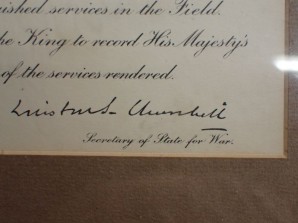 nished services in the Field.
he King to record His Majesty's
of the services rendered.
Winston S. Churchill
Secretary of State for War.